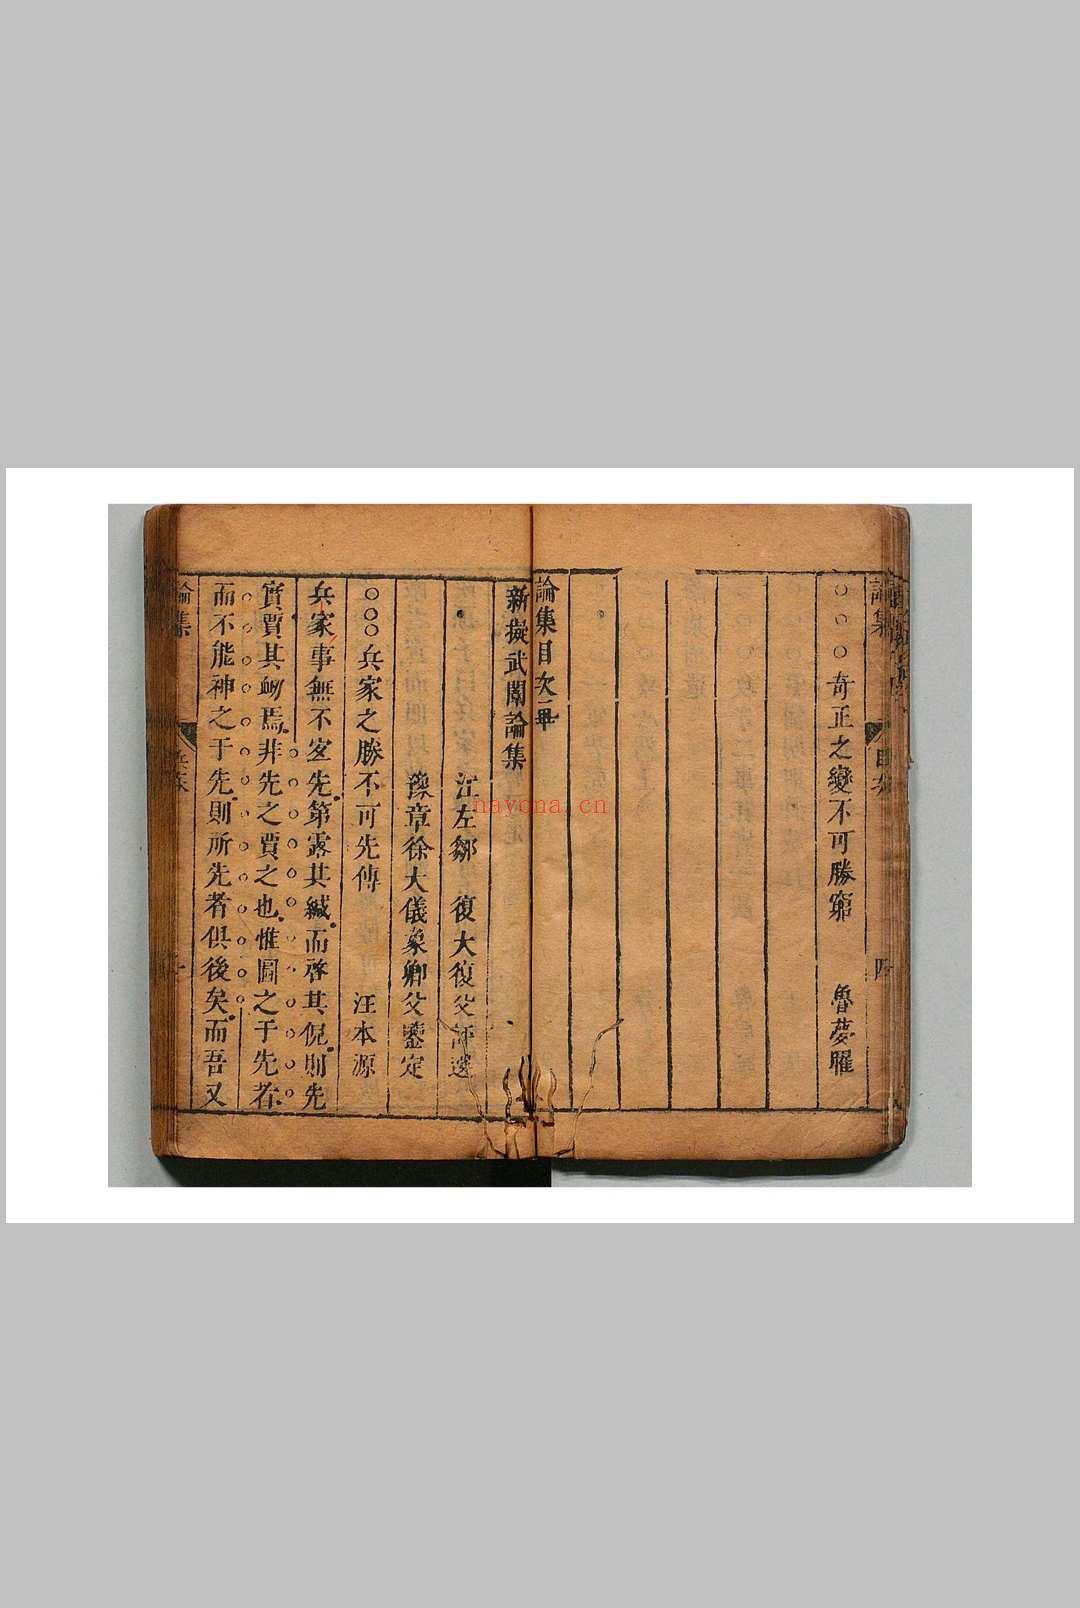 論集
目次
四
○○○奇正之變不可勝窮 魯夢曜
論集目次畢
新擬武闈論集
江左鄒 復大復父評選
豫章徐大儀象卿父鑒定
○○○兵家之勝不可先傳 汪本源
兵家事無不宜先第露其緘而啓其倪則先
實賈其衂焉非先之賈之也惟圖之于先者
而不能神之于先則所先者俱後矣而吾又
論集
nayona.cn